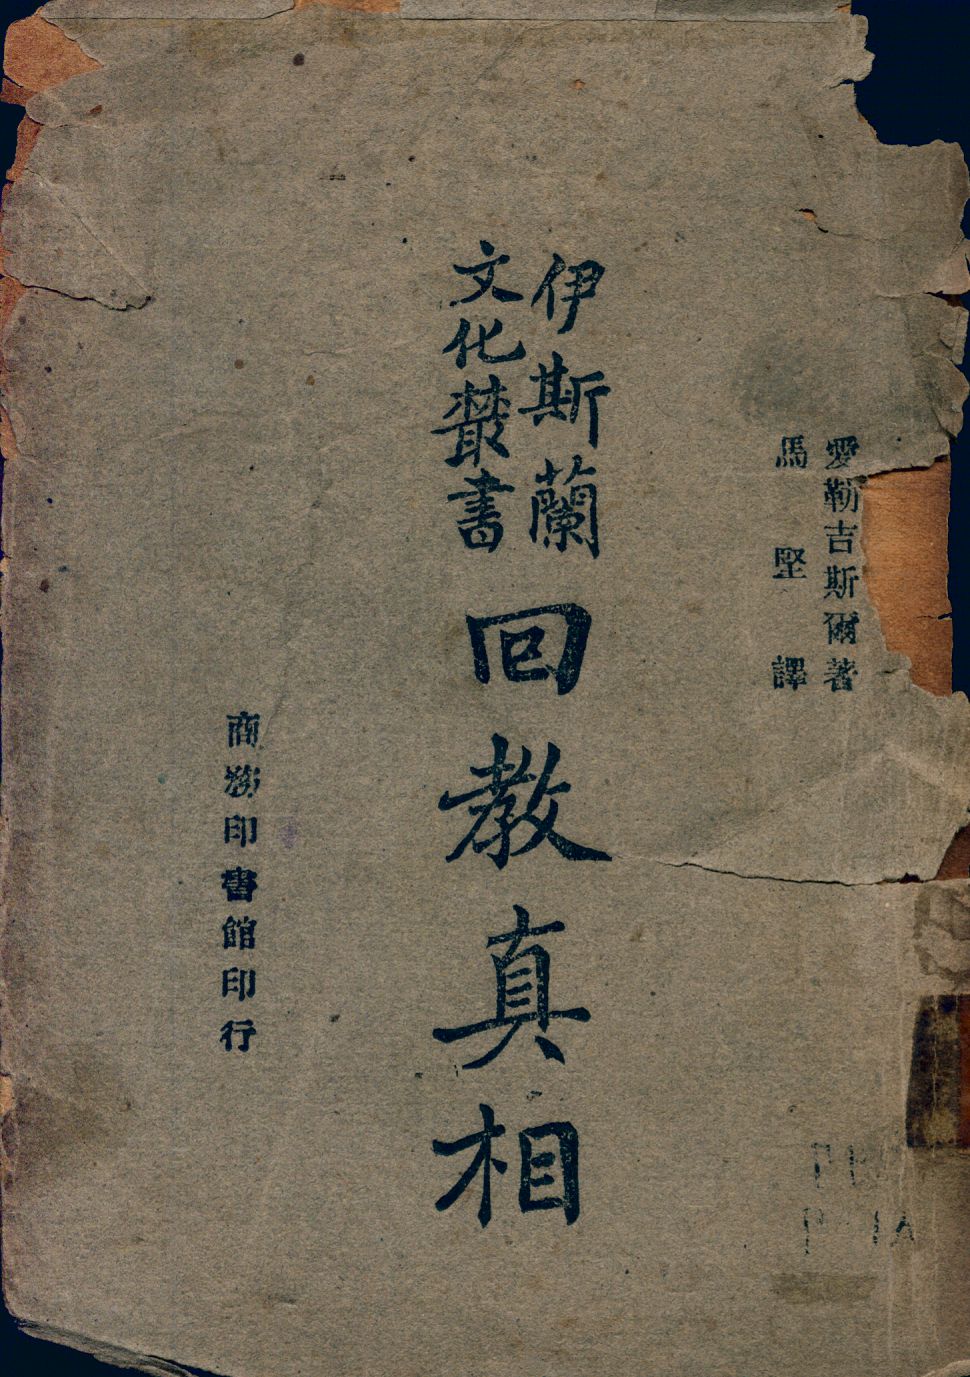 愛勒吉斯爾著
馬堅譯
伊斯蘭
文化叢書
回教真相
商務印書館印行